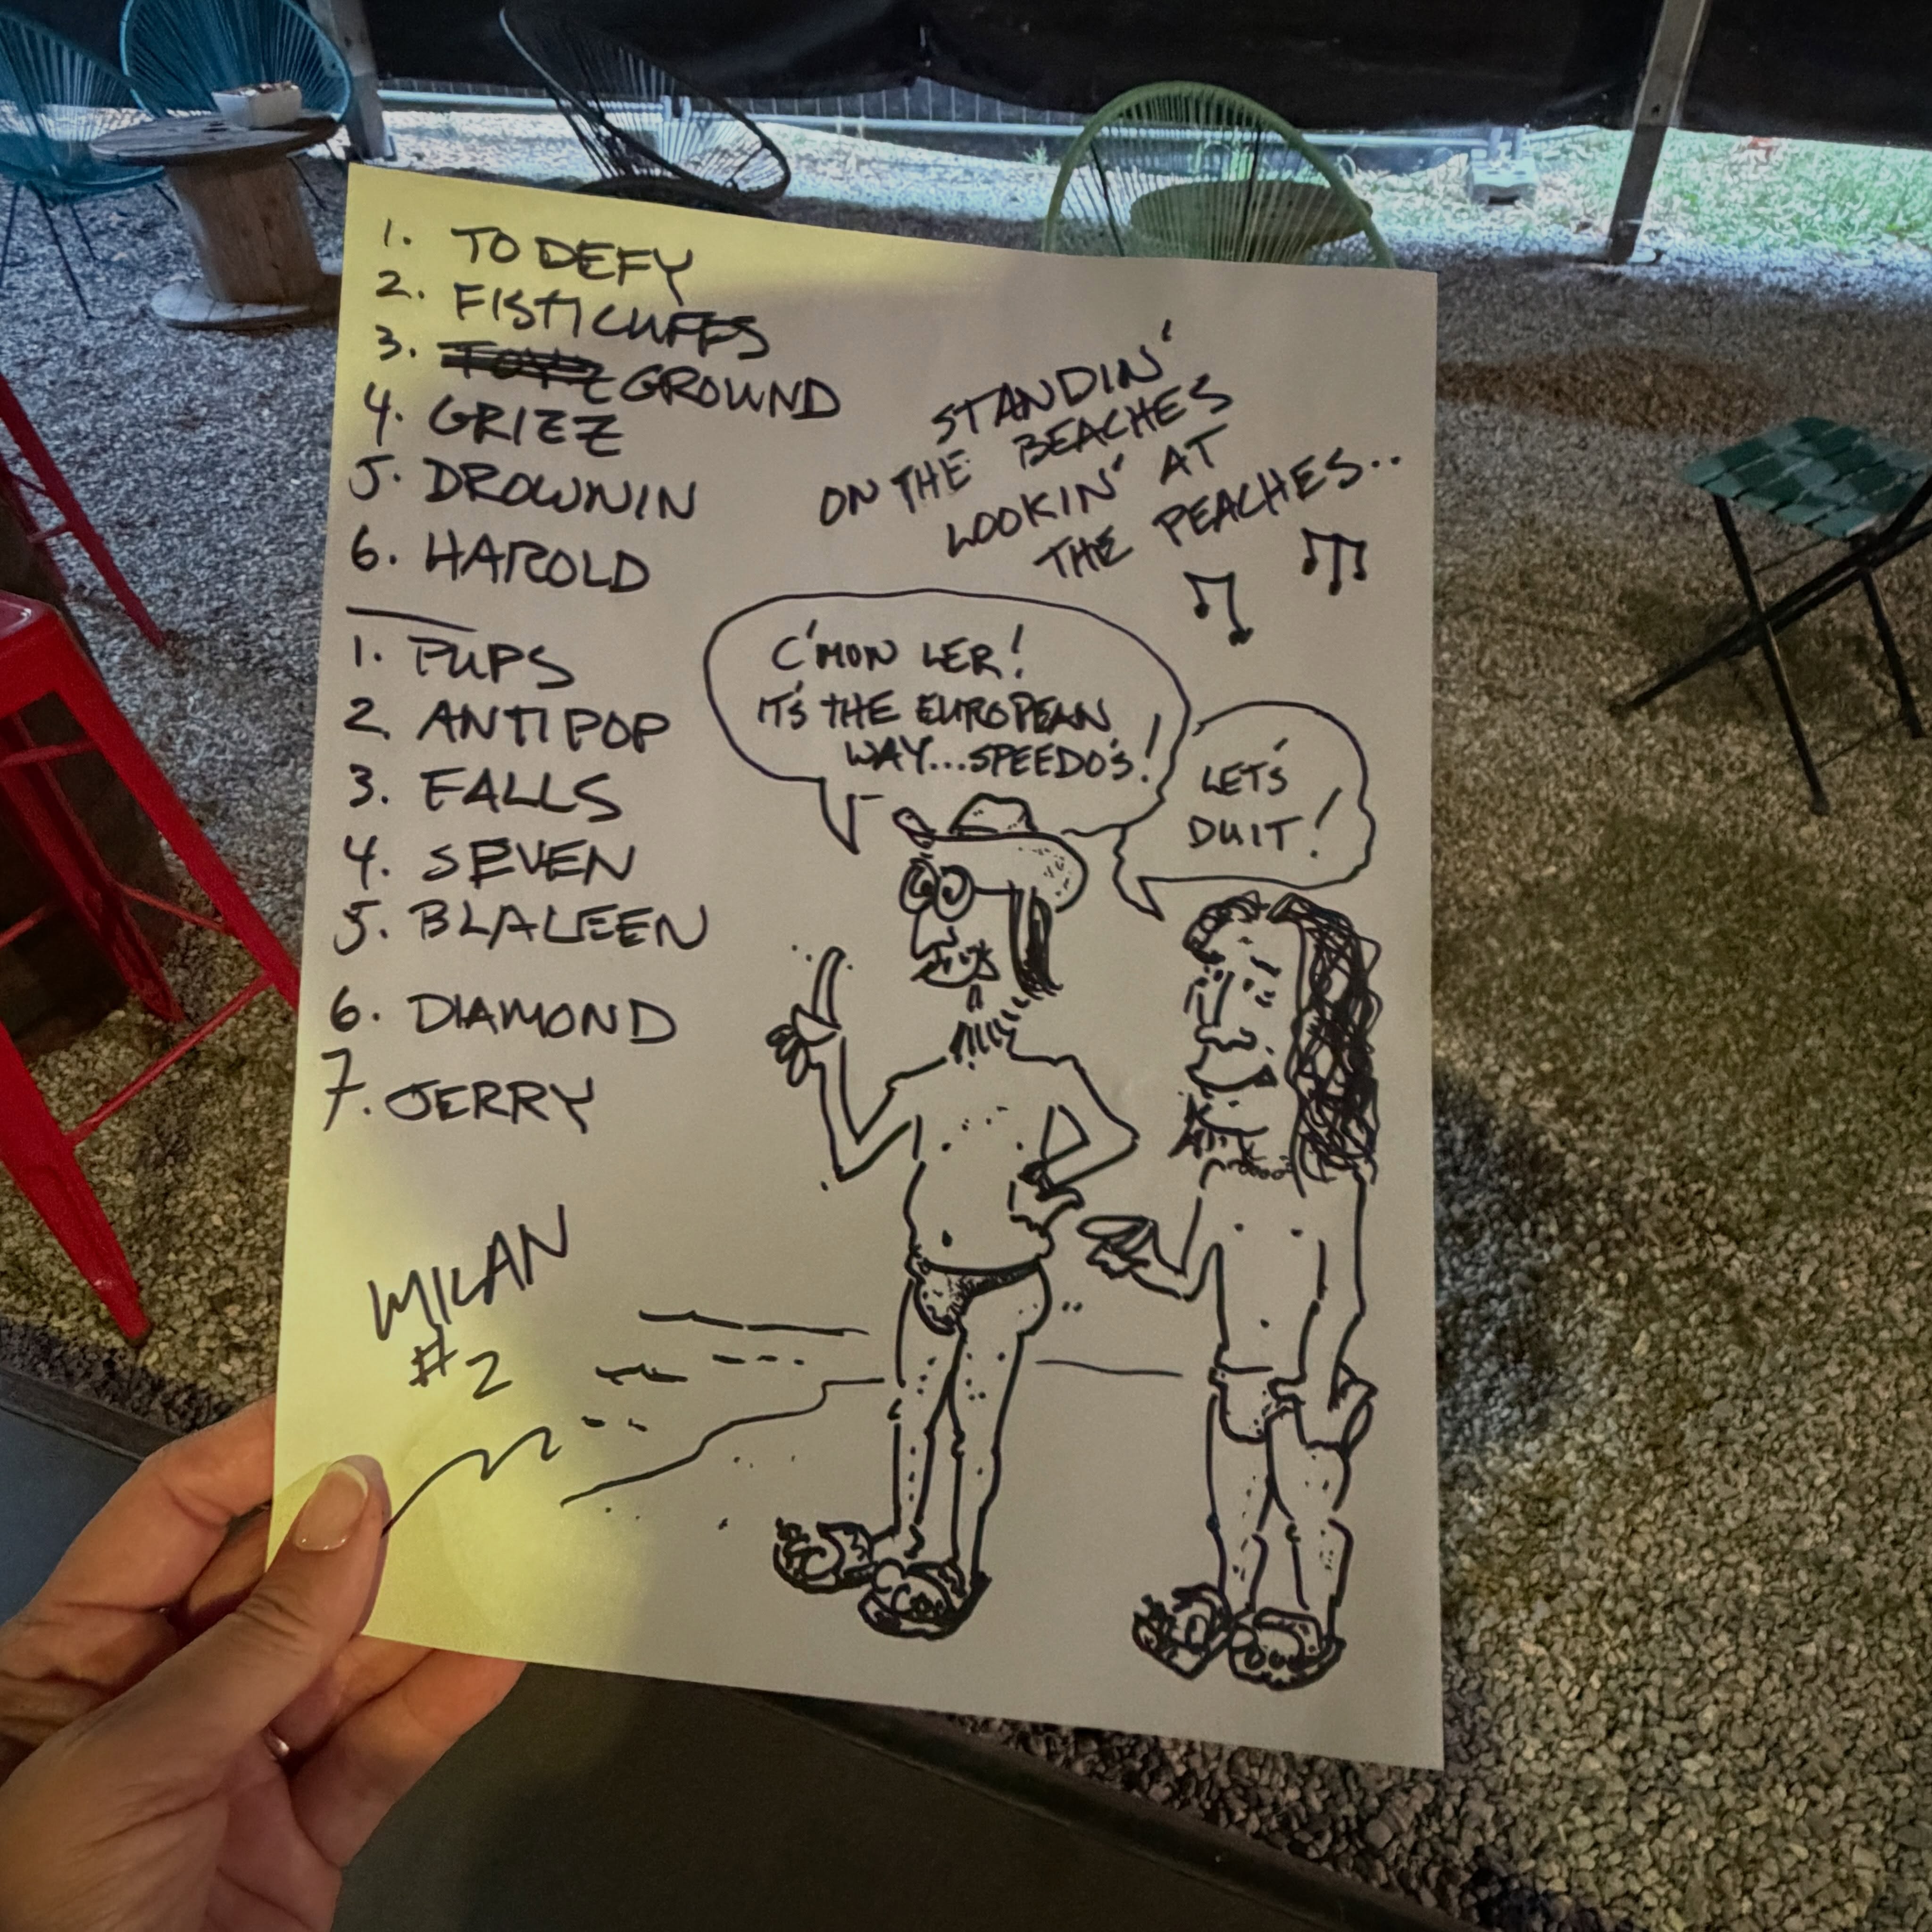 1. TO DEFY
2. FISTICUFFS
3. GROUND
4. GRIZZ
5. DROWNIN
6. HAROLD
1. PUPS
2. ANTIPOP
3. FALLS
4. SEVEN
5. BLALEEN
6. DIAMOND
7. JERRY
MILAN
#2
STANDIN'
ON THE BEACHES
LOOKIN' AT
THE PEACHES..
C'MON LER!
IT'S THE EUROPEAN
WAY...SPEEDO'S!
LET'S
DUIT!